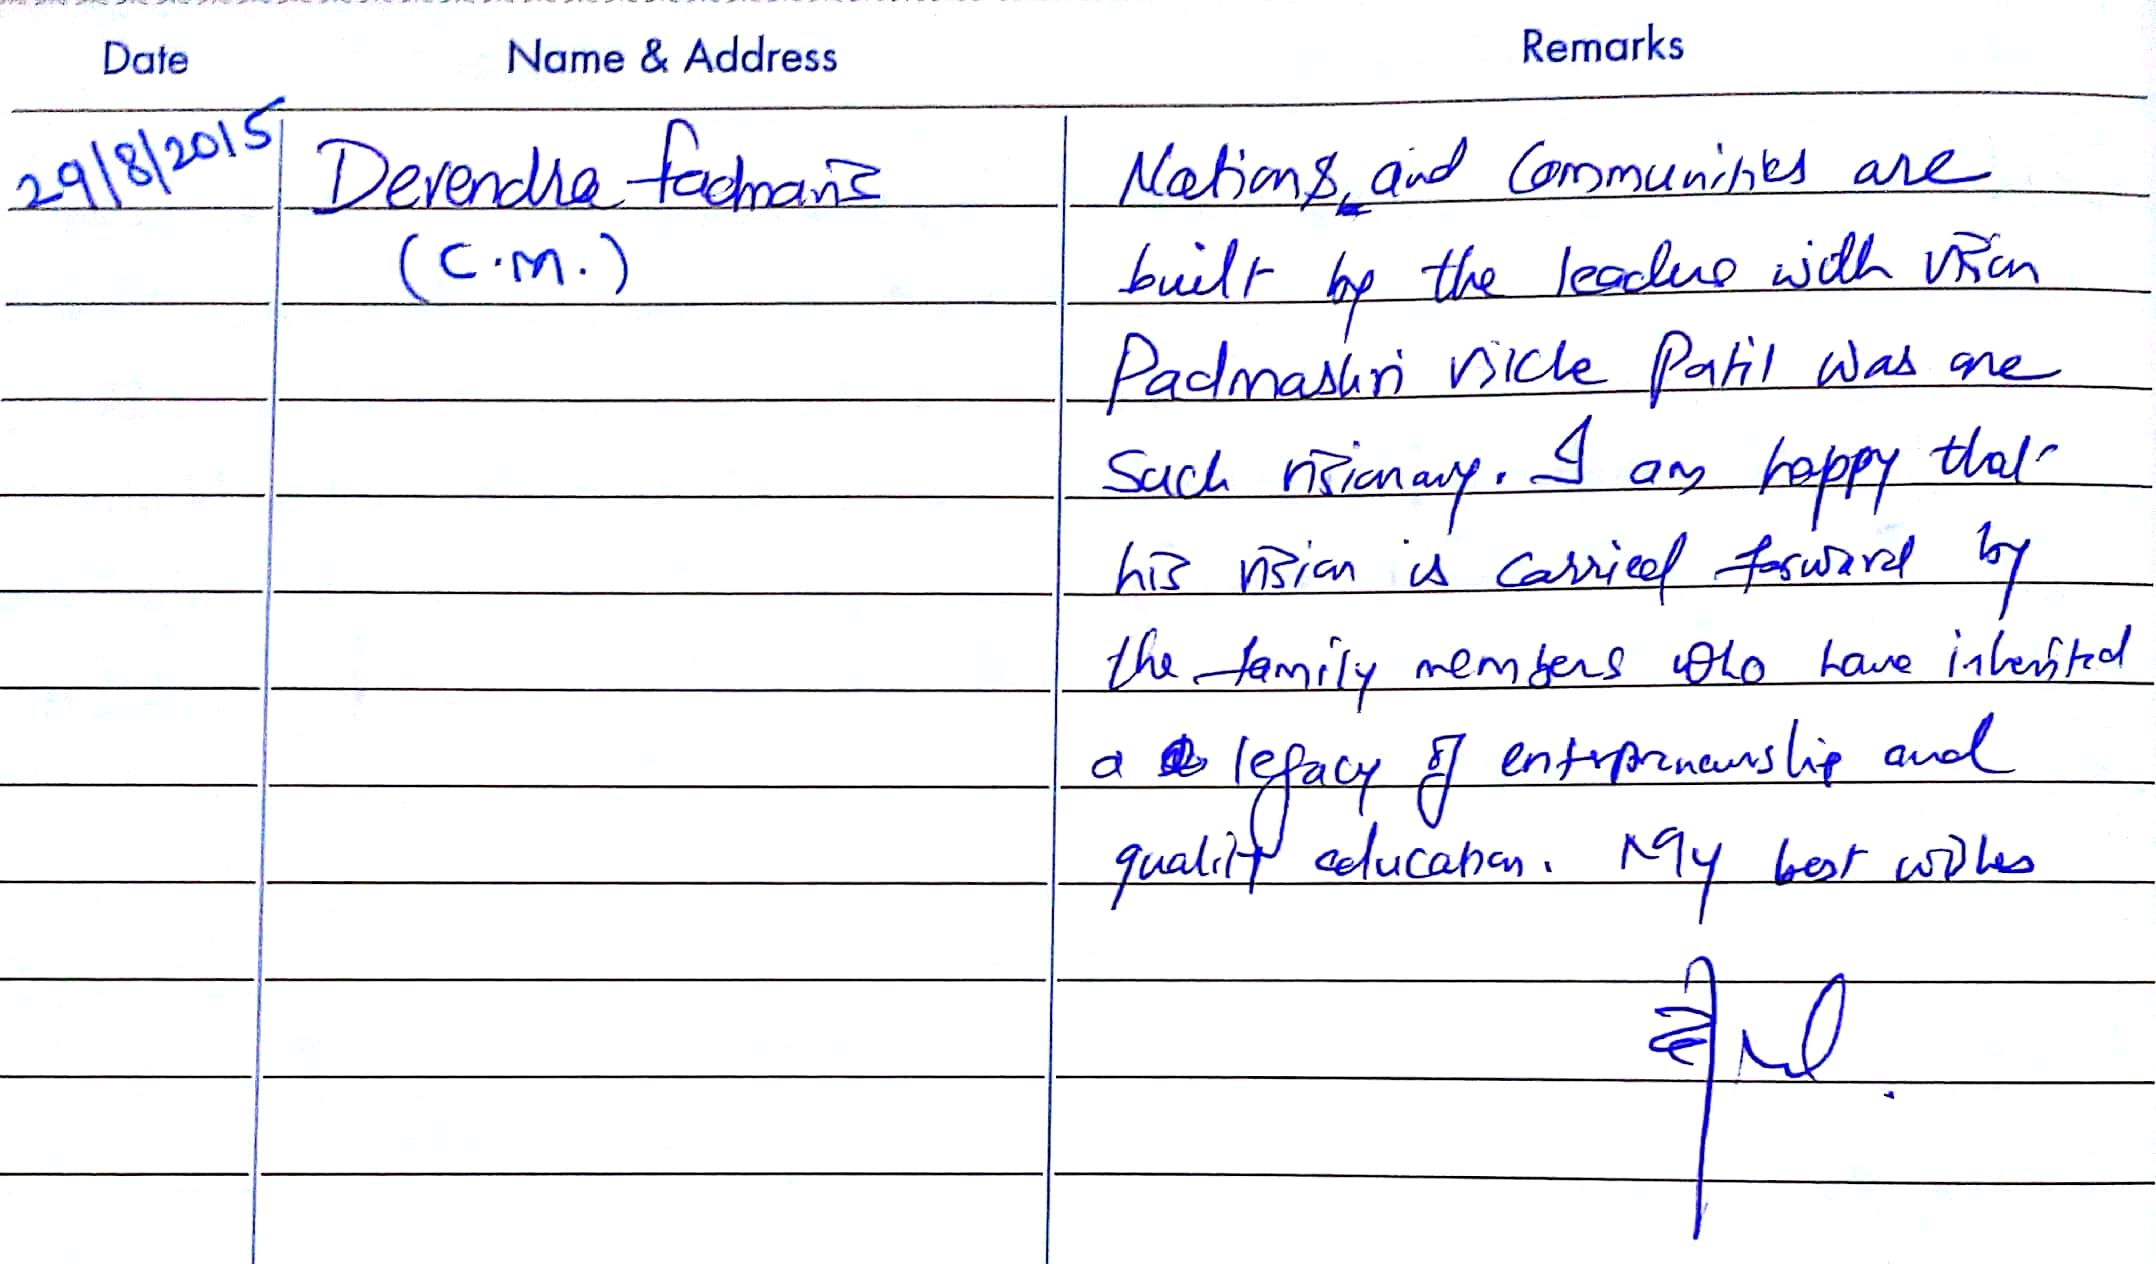 Date Name & Address Remarks
29/8/2015 Devendra Fadnavis Nations, and Communities are
(C.M.) built by the leaders with vision
Padmashri Vikhe Patil was one
Such visionary. I am happy that
his vision is carried forward by
the family members who have inherited
a legacy of entrepreneurship and
quality education. My best wishes